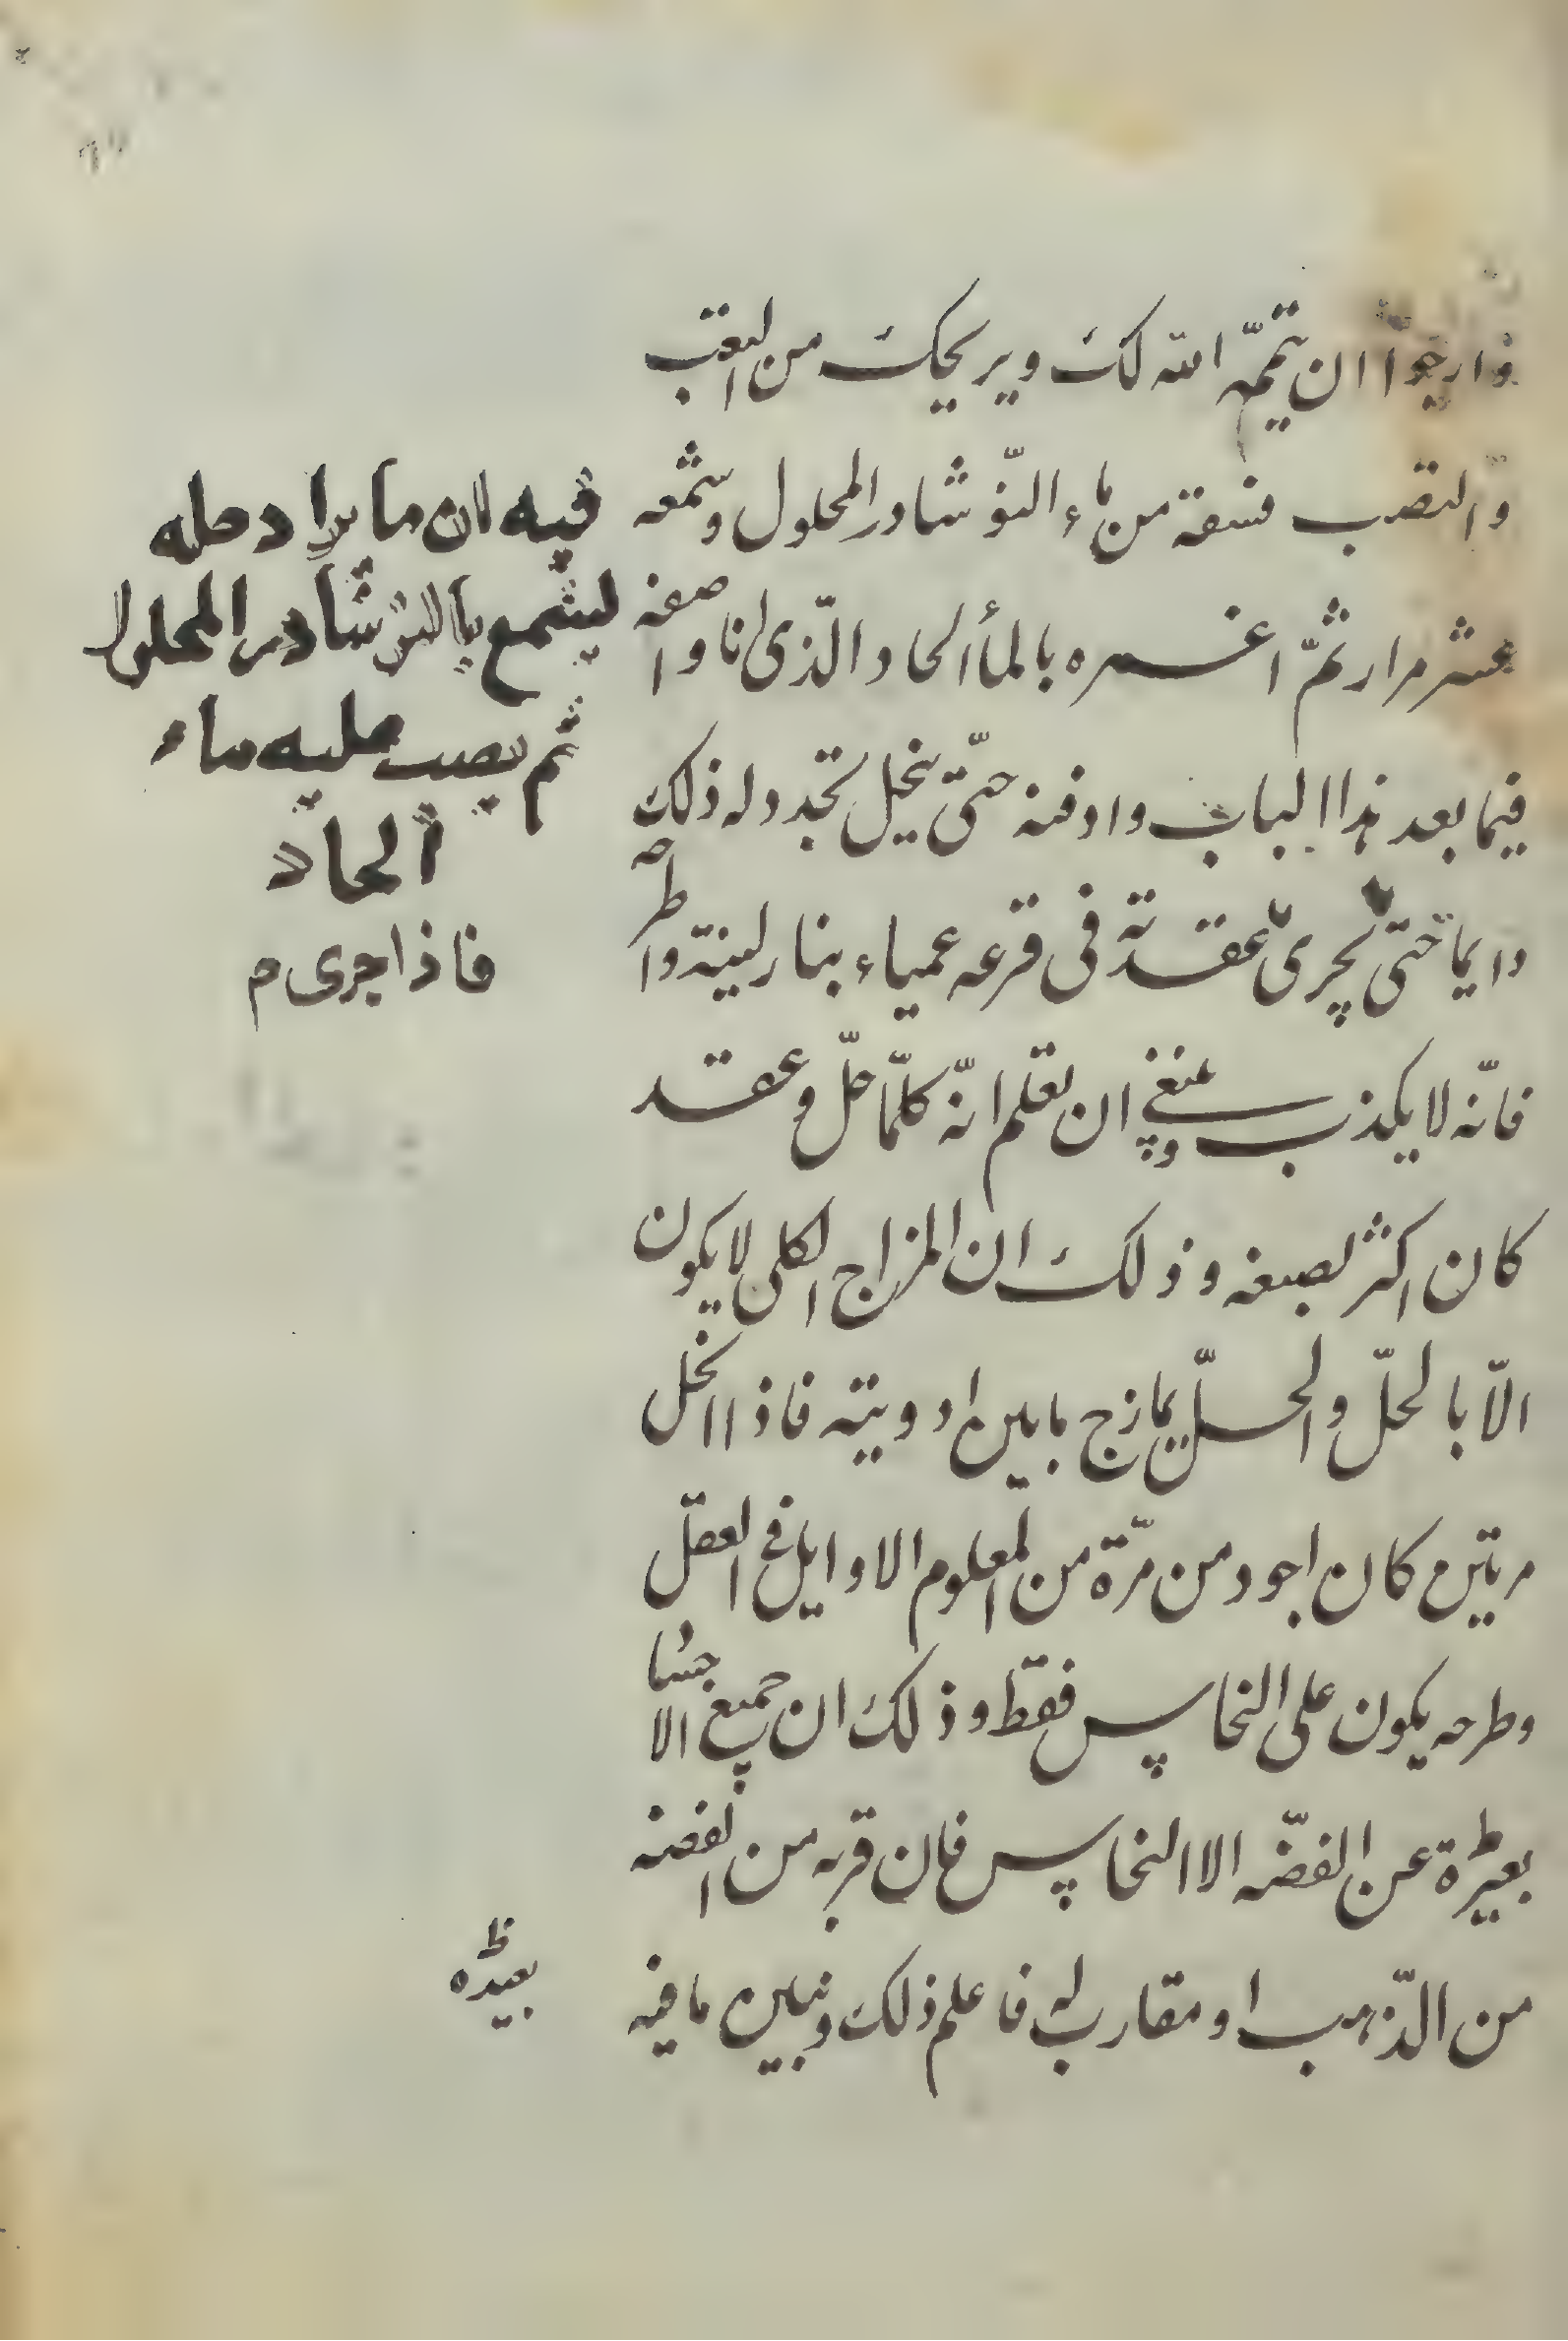 وارجوا ان يتممه الله لك ويريحك من التعب
والنصب فسقه من ماء النوشادر المحلول وشمعه
عشر مرار ثمّ اغمره بالماء الحاد الّذى انا واصفه
فيما بعد هذا الباب وادفنه حتّى ينحل تجدد له ذلك
دايما حتى يجرى عقدته فى قرعه عمياء بنار لينة واطرحه
فانّه لا يكذب وينبغى ان تعلم انّه كلّما حلّ وعقد
كان اكثر لصبغه وذلك ان المزاج الكلى لا يكون
الّا بالحلّ والحلّ يمازج بابين ادويته فاذا انحل
مرتين كان اجود من مرّة من المعلوم الاوايل فى العقل
وطرحه يكون على النحاس فقط وذلك ان جميع الاجسا
بعيرة عن الفضّه الا النحاس فان قربه من الفضه
من الذّهب او مقارب له فاعلم ذلك وتبين ما فيه
فيه ان ما يراد حله
ليشمع بالنوشادر المحلول
ثم يصب عليه ماء
الحاد
فاذا جرى م
بعيده ظ